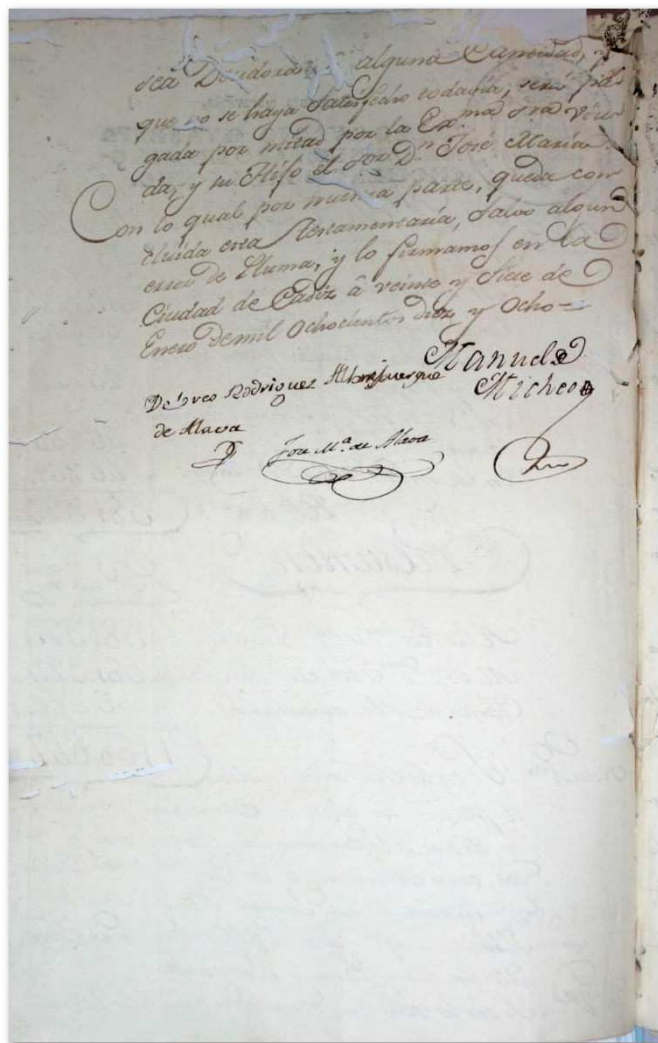 sea Deudora alguna Cantidad, 
que no se haya Satisfecho todavía, será pa-
gada por mitad por la Ex.ma Sra Viu-
da, y su Hijo el Sor Dn José María.
Con lo qual por nuestra parte, queda con
cluida esta Testamentaría, Salvo algun
error de Pluma, y lo firmamos en la
Ciudad de Cadiz â veinte y Siete de
Enero de mil Ochocientos diez y Ocho=
Manuel
Micheo
Rodriguez Alburquerque
de Alava
Jose Ma. de Alava
Resumen